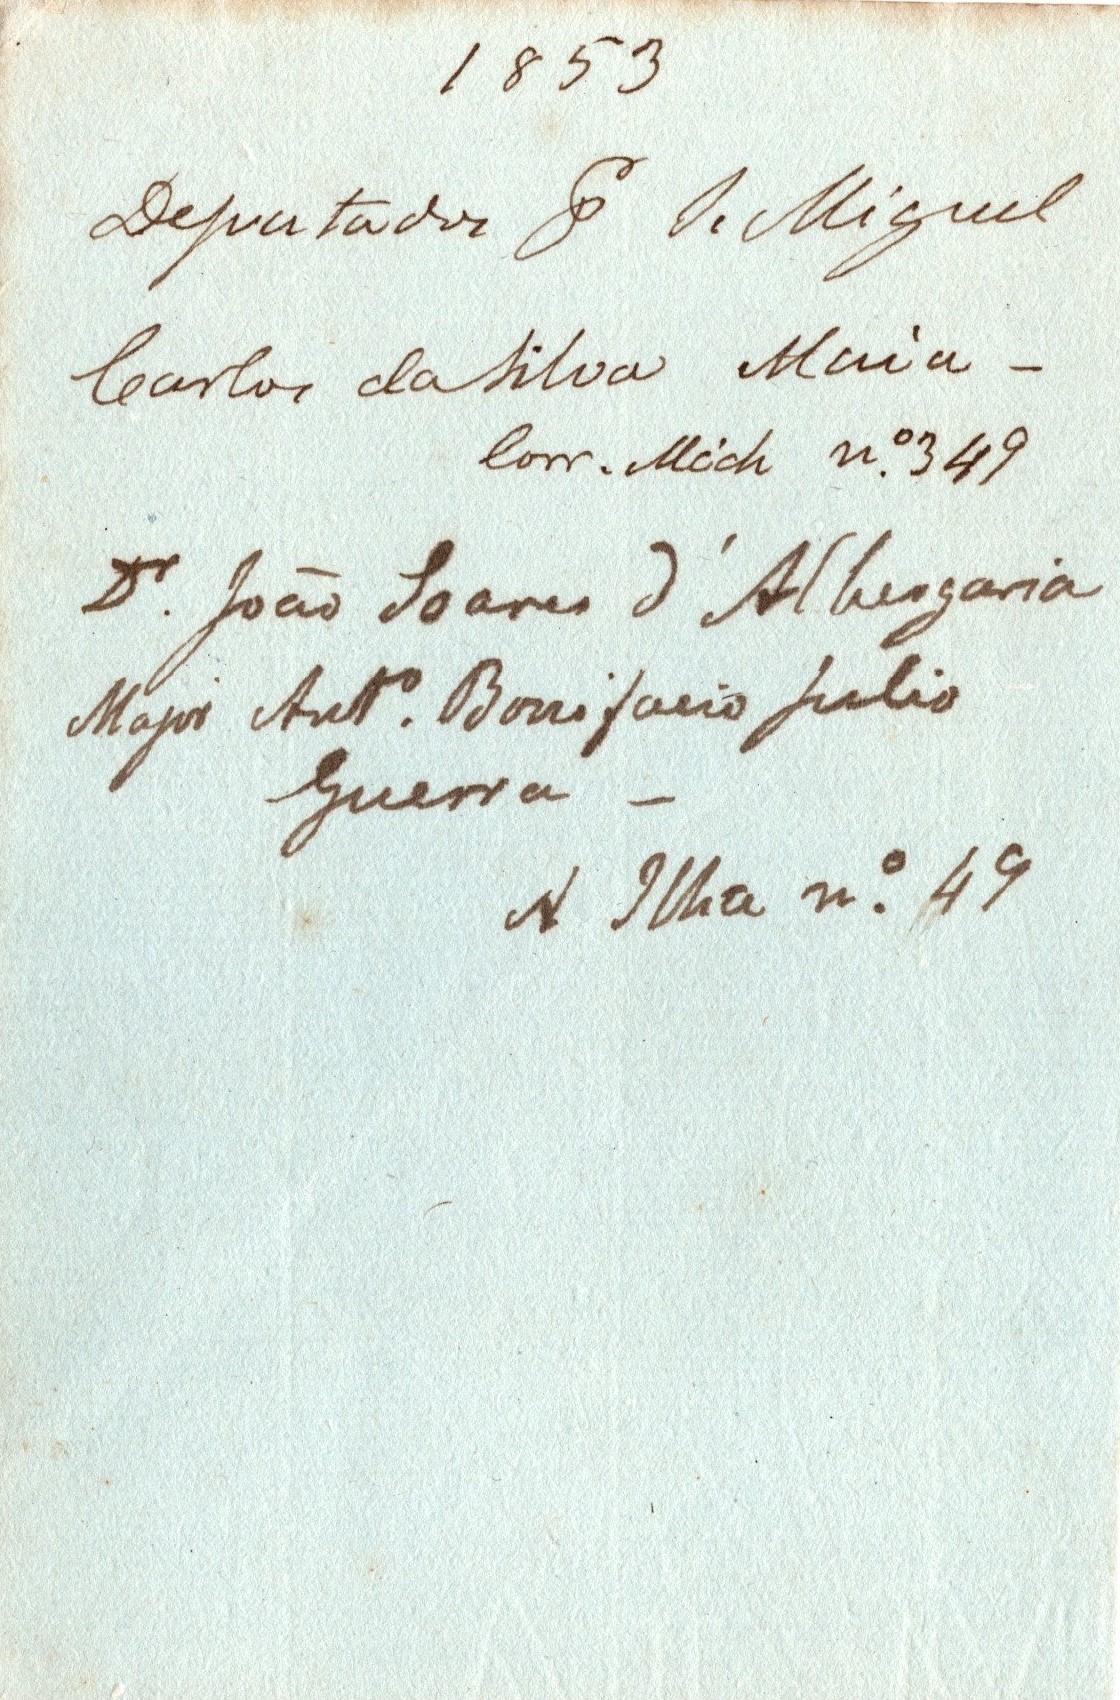 1853
Deputados P S. Miguel
Carlos da Silva Maia –
Corr. Mich nº. 349
Dr. João Soares d'Albergaria
Major Antº. Bonifacio Julio
Guerra –
A Ilha nº. 49